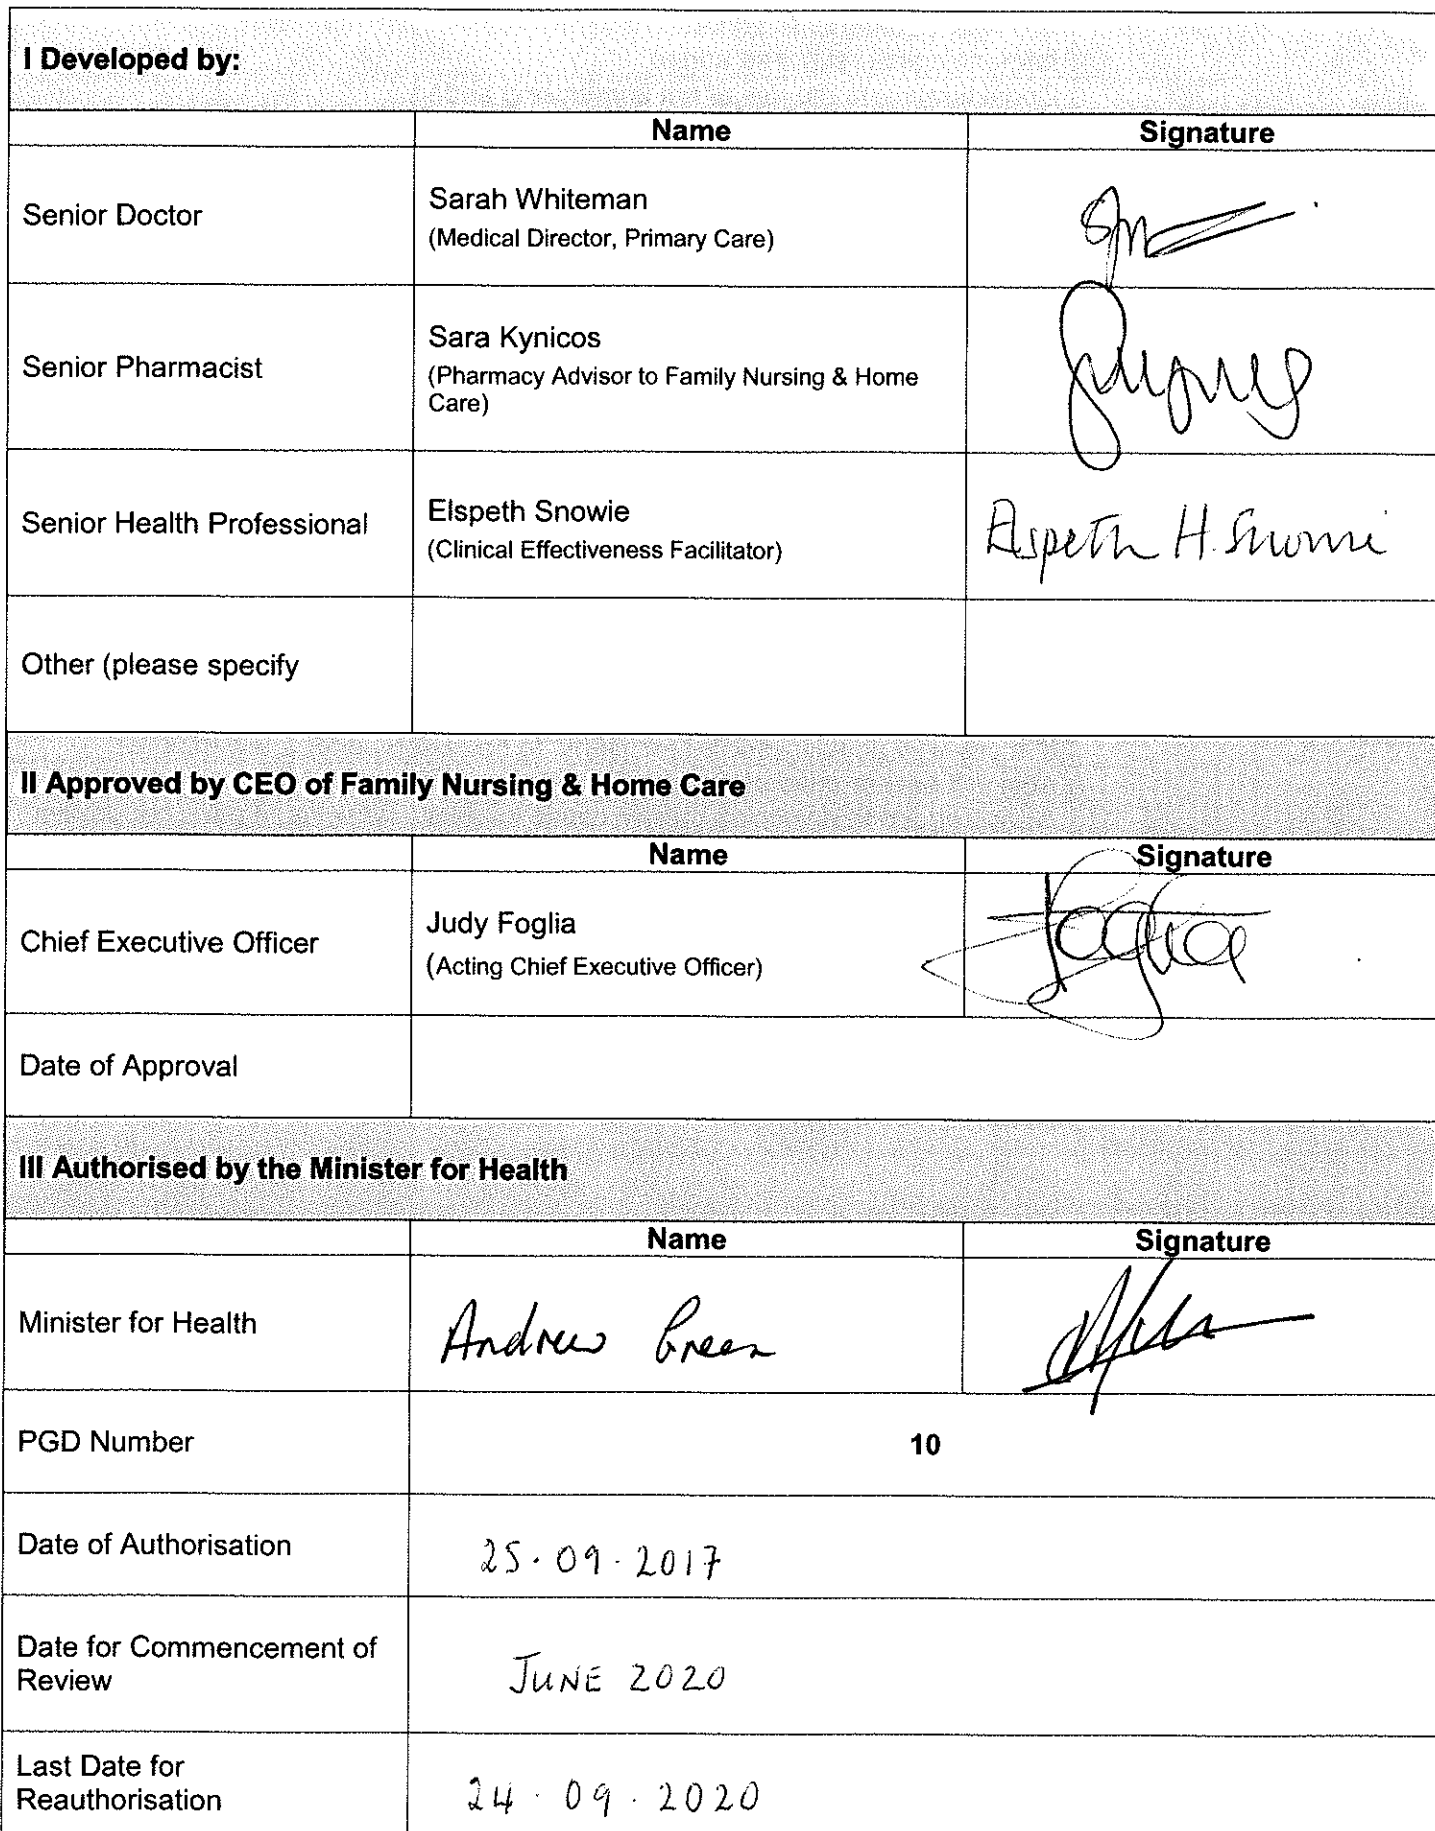 I Developed by:
Name Signature
Senior Doctor
Sarah Whiteman
(Medical Director, Primary Care)
Senior Pharmacist
Sara Kynicos
(Pharmacy Advisor to Family Nursing & Home
Care)
Senior Health Professional
Elspeth Snowie
(Clinical Effectiveness Facilitator)
Elspeth H. Snowie
Other (please specify
II Approved by CEO of Family Nursing & Home Care
Name Signature
Chief Executive Officer
Judy Foglia
(Acting Chief Executive Officer)
Date of Approval
III Authorised by the Minister for Health
Name Signature
Minister for Health
Andrew Green
PGD Number
10
Date of Authorisation
25.09.2017
Date for Commencement of
Review
JUNE 2020
Last Date for
Reauthorisation
24.09.2020